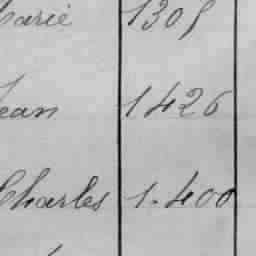 Marie 1305
Jean 1426
Charles 1.400